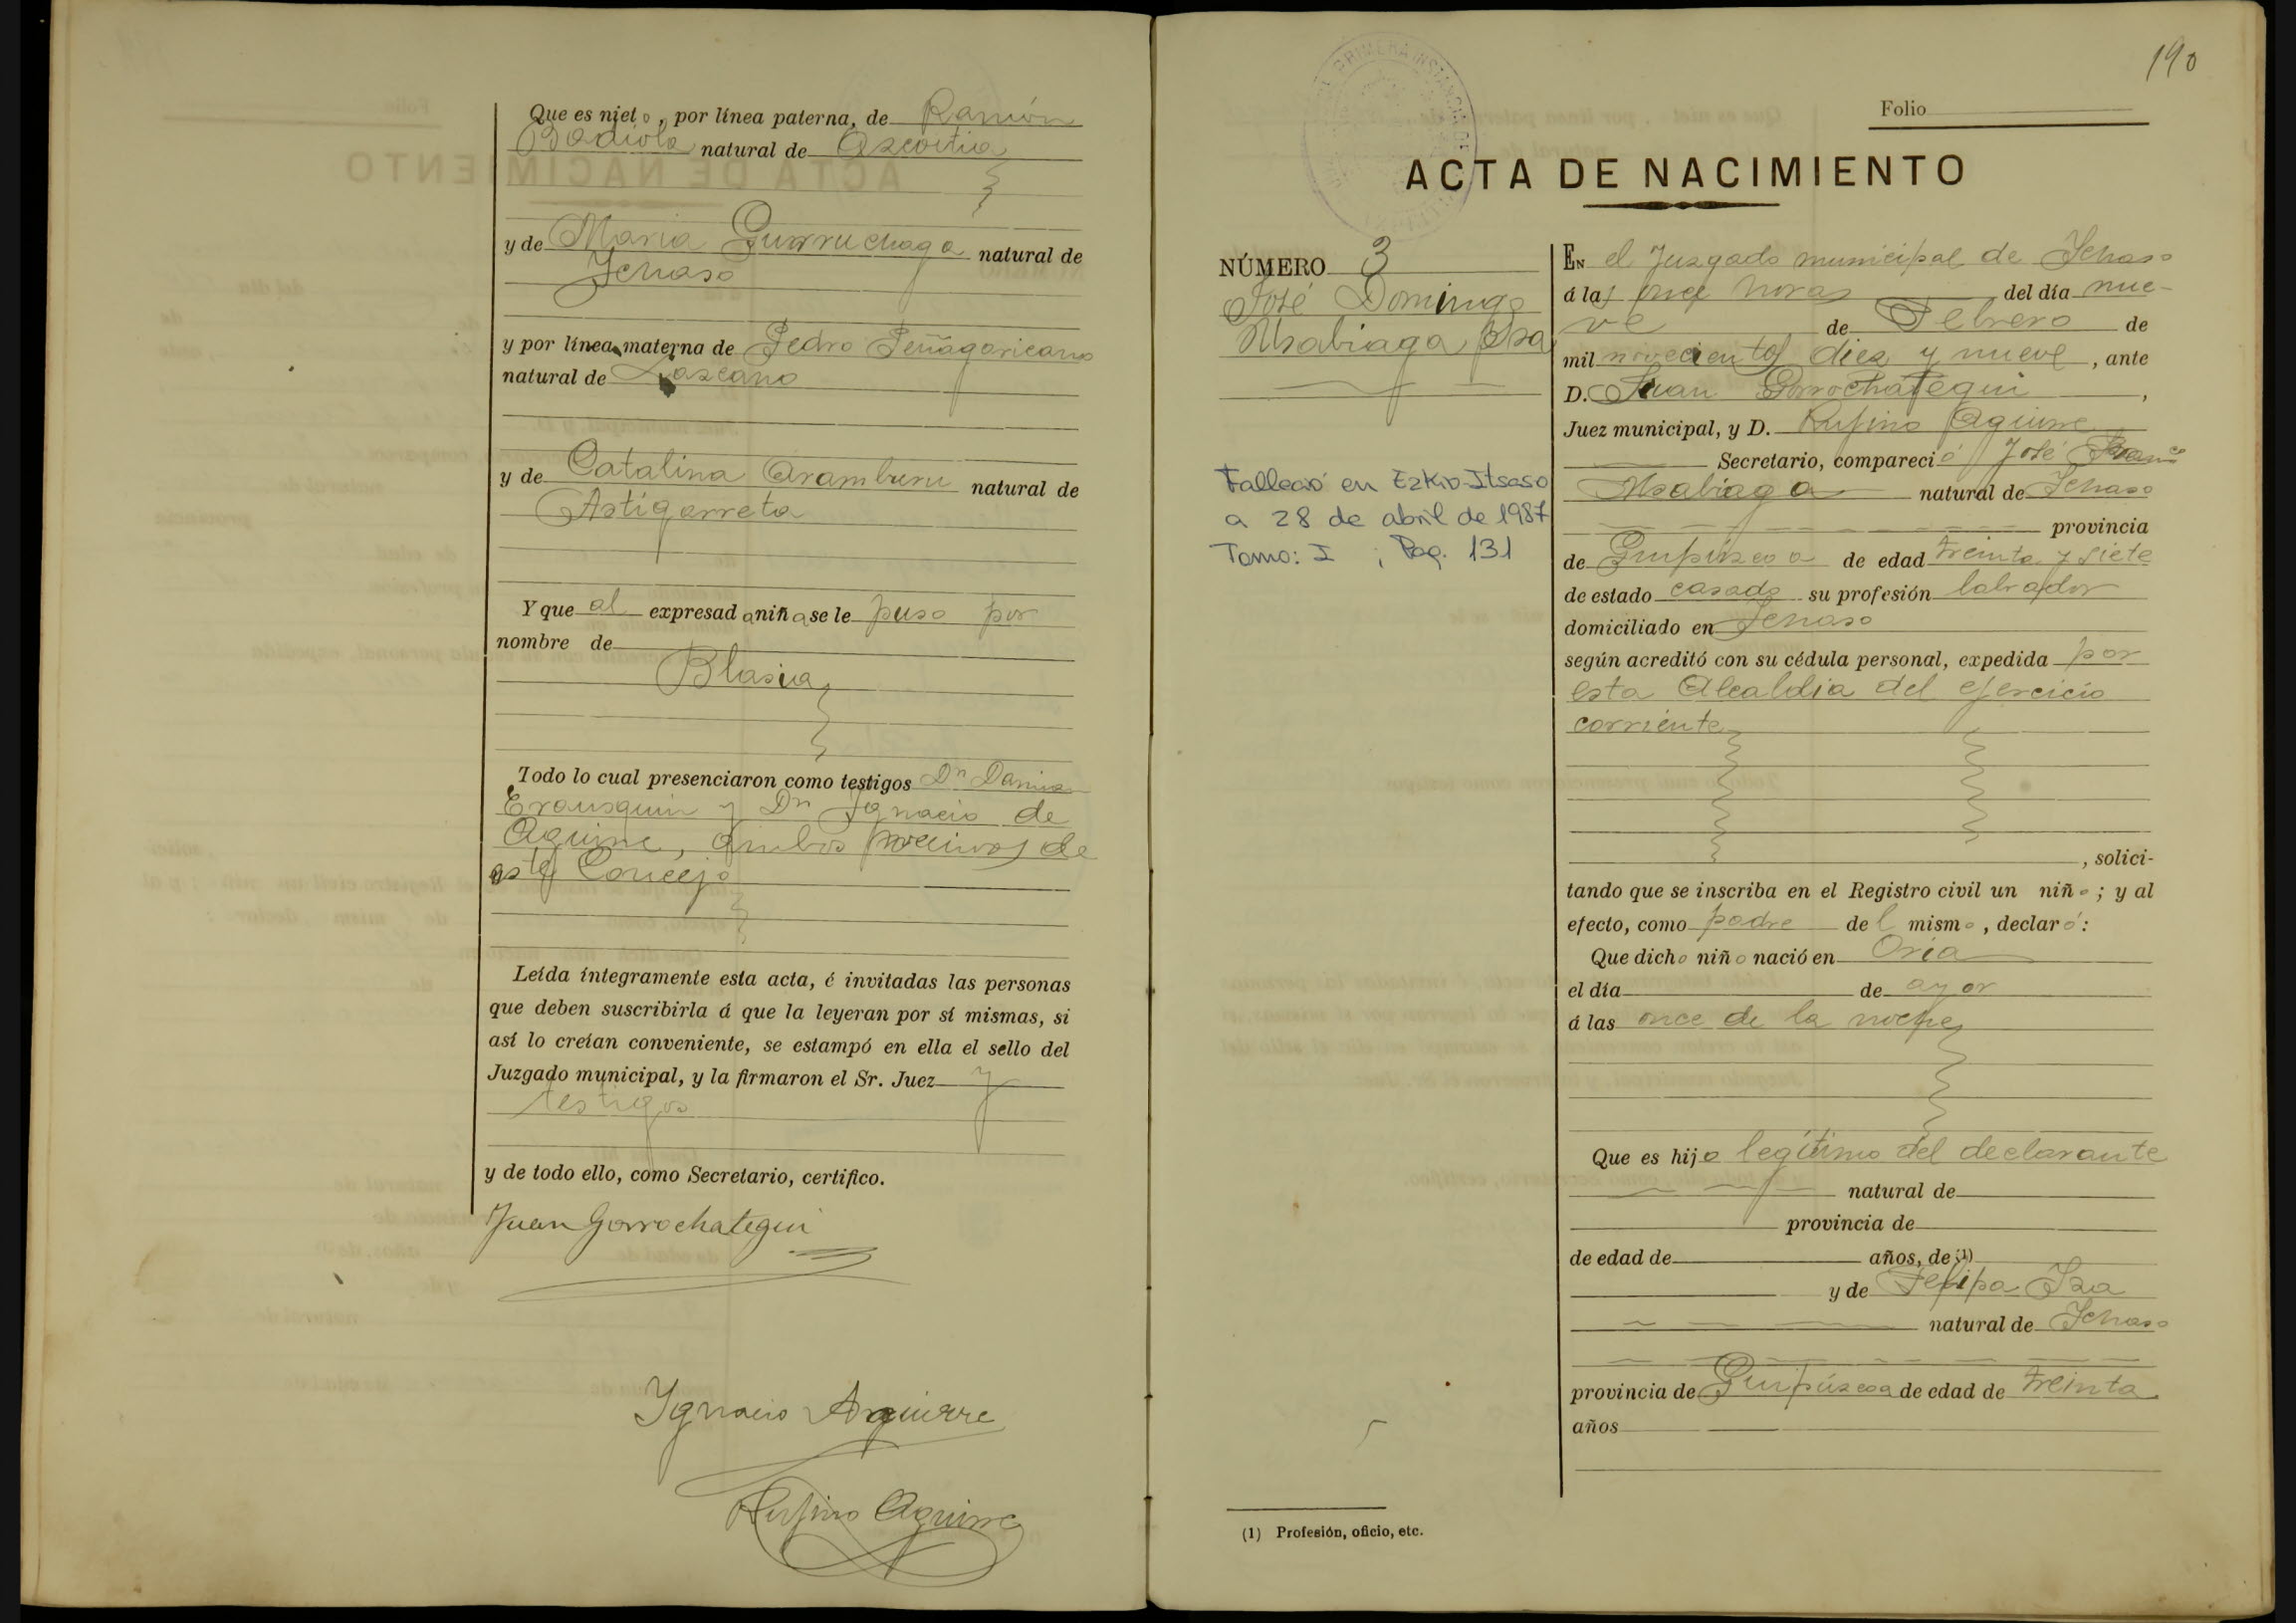 Que es nieto, por línea paterna, de Ramón
Badiola natural de Azcoitia
y de Maria Gurruchaga natural de
Ichaso
y por línea materna de Pedro Peñagaricano
natural de Lazcano
y de Catalina Aramburu natural de
Astigarreta
Y que al expresada niña se le puso por
nombre de
Blasia
Todo lo cual presenciaron como testigos Dn Damian
Erausquin y Dn Ignacio de
Aguirre, ambos vecinos de
este Concejo
Leída íntegramente esta acta, é invitadas las personas
que deben suscribirla á que la leyeran por sí mismas, si
así lo creían conveniente, se estampó en ella el sello del
Juzgado municipal, y la firmaron el Sr. Juez y
testigos
y de todo ello, como Secretario, certifico.
Juan Gorrochategui
Ignacio Aguirre
Rufino Aguirre
190
Folio
ACTA DE NACIMIENTO
NÚMERO 3
José Domingo
Usabiaga Iza
Falleció en Ezkio-Itsaso
a 28 de abril de 1987
Tomo: I ; Pag. 131
EN el Juzgado municipal de Ichaso
á las once horas del día nue-
ve de Febrero de
mil novecientos diez y nueve, ante
D. Juan Gorrochategui,
Juez municipal, y D. Rufino Aguirre
Secretario, compareció José Franco
Usabiaga natural de Ichaso
provincia
de Guipúzcoa de edad treinta y siete
de estado casado su profesión labrador
domiciliado en Ichaso
según acreditó con su cédula personal, expedida por
esta Alcaldia del ejercicio
corriente
, solici-
tando que se inscriba en el Registro civil un niño; y al
efecto, como padre del mismo, declaró:
Que dicho niño nació en Oria
el día de ayer
á las once de la noche
Que es hijo legítimo del declarante
natural de
provincia de
de edad de años, de (1)
y de Felipa Iza
natural de Ichaso
provincia de Guipúzcoa de edad de treinta
años
(1) Profesión, oficio, etc.